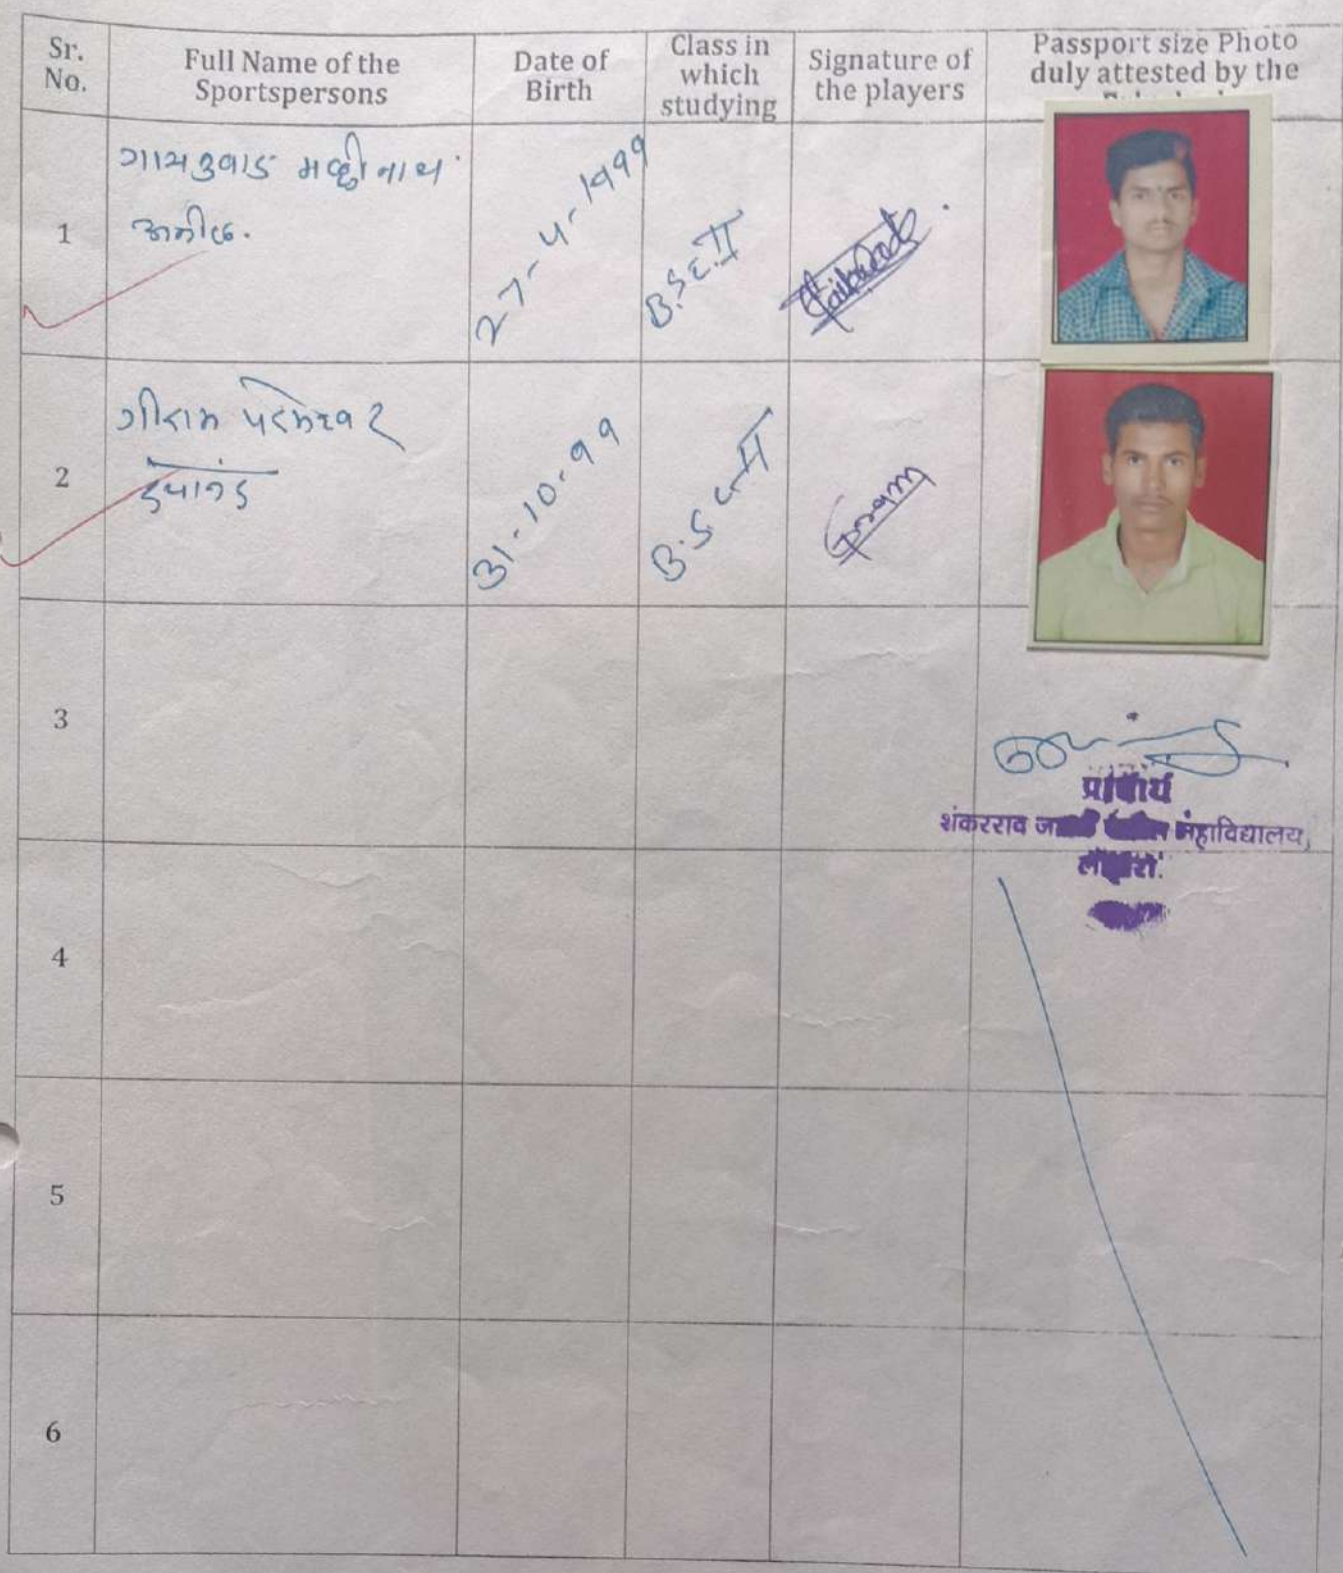 Sr.
No.
Full Name of the
Sportspersons
Date of
Birth
Class in
which
studying
Signature of
the players
Passport size Photo
duly attested by the
1
गायकवाड मच्छीनाथ
अनिल.
27-4-1999
B.Sc.II
Gaikwad
2
गीराम परमेश्वर
दयानंद
31-10-99
B.Sc-II
Giram
3
प्राचार्य
शंकरराव महाविद्यालय,
4
5
6